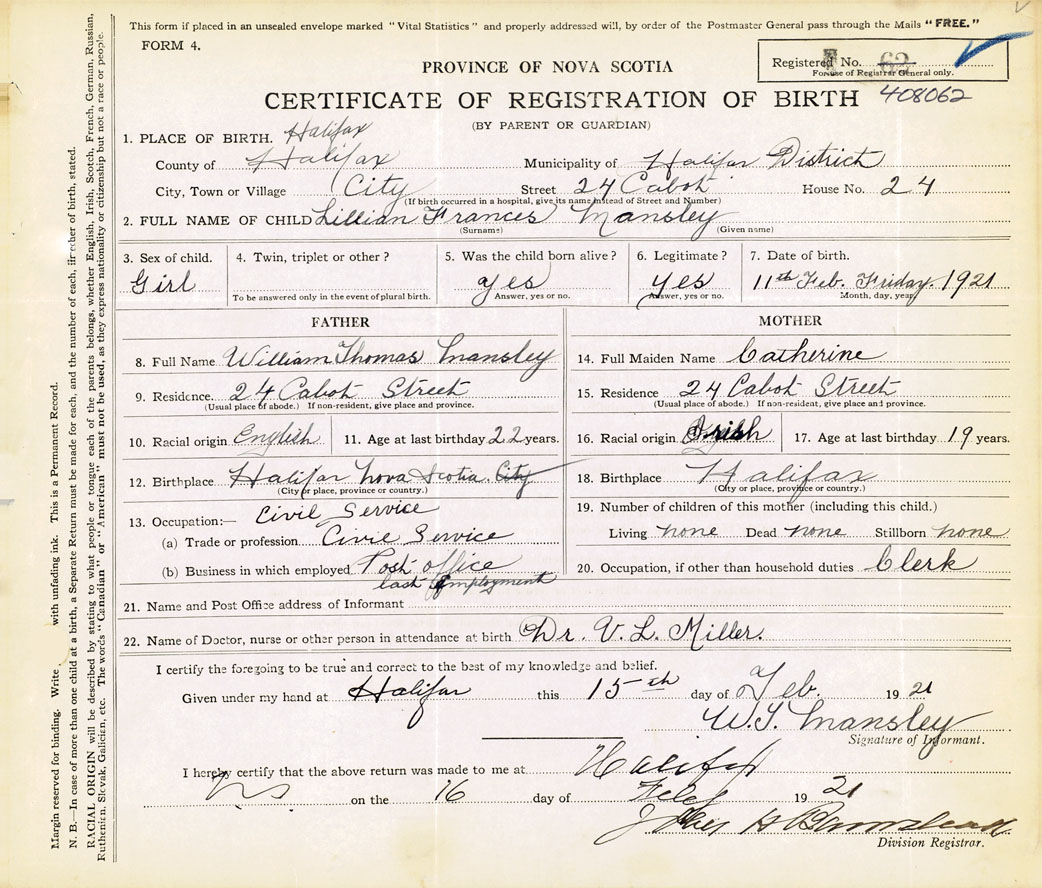 This form if placed in an unsealed envelope marked "Vital Statistics" and properly addressed will, by order of the Postmaster General pass through the Mails "FREE."
FORM 4.
Registered No. 62
For use of Registrar General only.
PROVINCE OF NOVA SCOTIA
CERTIFICATE OF REGISTRATION OF BIRTH 408062
(BY PARENT OR GUARDIAN)
1. PLACE OF BIRTH. Halifax
County of Halifax Municipality of Halifax District
City, Town or Village City Street 24 Cabot House No. 24
(If birth occurred in a hospital, give its name instead of Street and Number)
2. FULL NAME OF CHILD Lillian Frances Mansley
(Surname) (Given name)
3. Sex of child. 4. Twin, triplet or other? 5. Was the child born alive? 6. Legitimate? 7. Date of birth.
Girl yes yes 11th Feb. Friday. 1921
To be answered only in the event of plural birth. Answer, yes or no. Answer, yes or no. Month, day, year.
FATHER MOTHER
8. Full Name William Thomas Mansley 14. Full Maiden Name Catherine
9. Residence. 24 Cabot Street 15. Residence 24 Cabot Street
(Usual place of abode.) If non-resident, give place and province. (Usual place of abode.) If non-resident, give place and province.
10. Racial origin English 11. Age at last birthday 22 years. 16. Racial origin Irish 17. Age at last birthday 19 years.
12. Birthplace Halifax Nova Scotia. City 18. Birthplace Halifax
(City or place, province or country.) (City or place, province or country.)
13. Occupation:— Civil Service 19. Number of children of this mother (including this child.)
(a) Trade or profession. Civil Service Living none Dead none Stillborn none
(b) Business in which employed Post office 20. Occupation, if other than household duties Clerk
last employment
21. Name and Post Office address of Informant
22. Name of Doctor, nurse or other person in attendance at birth Dr. V. L. Miller.
I certify the foregoing to be true and correct to the best of my knowledge and belief.
Given under my hand at Halifax this 15th day of Feb. 1921
W.T. Mansley
Signature of Informant.
I hereby certify that the above return was made to me at Halifax
NS on the 16 day of Feby 1921
Division Registrar.
Margin reserved for binding. Write with unfading ink. This is a Permanent Record.
N. B.—In case of more than one child at a birth, a Separate Return must be made for each, and the number of each, in order of birth, stated.
RACIAL ORIGIN will be described by stating to what people or tongue each of the parents belongs, whether English, Irish, Scotch, French, German, Russian,
Ruthenian, Slovak, Galician, etc. The words "Canadian" or "American" must not be used, as they express nationality or citizenship but not a race or people.